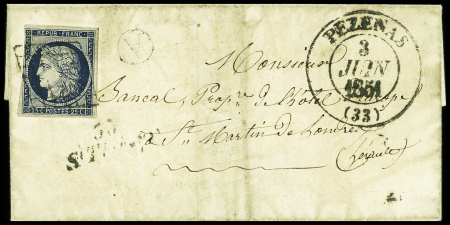 REPUB. FRANC.
25 C POSTES 25 C
PEZENAS
3
JUIN
1851
(33)
Monsieur
Bancal, Propre. de l'hôtel
à St. Martin de Londres
(hérault)